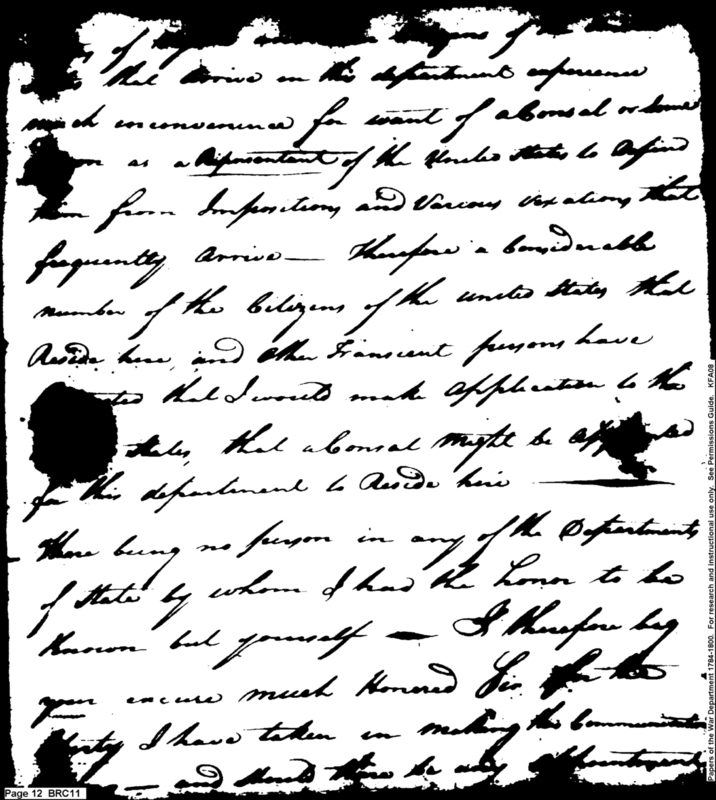 of
that Arrive in this department experience
much inconvenience for want of a Consul or Some
as a Representant of the United States to Defend
them from Impositions and Various vexations that
frequently Arrive — Therefore a Considerable
number of the Citizens of the united States that
Reside here, and Other Transient persons have
that I would make Application to the
States, that a Consul Might be
for this department to Reside here
there being no person in any of the Departments
of State by whom I had the honor to be
Known but yourself — I therefore beg
your excuse much Honored Sir for the
I have taken in making the Communication
— and should there be any appointment
Page 12 BRC11
Papers of the War Department 1784-1800. For research and instructional use only. See Permissions Guide. KFA08